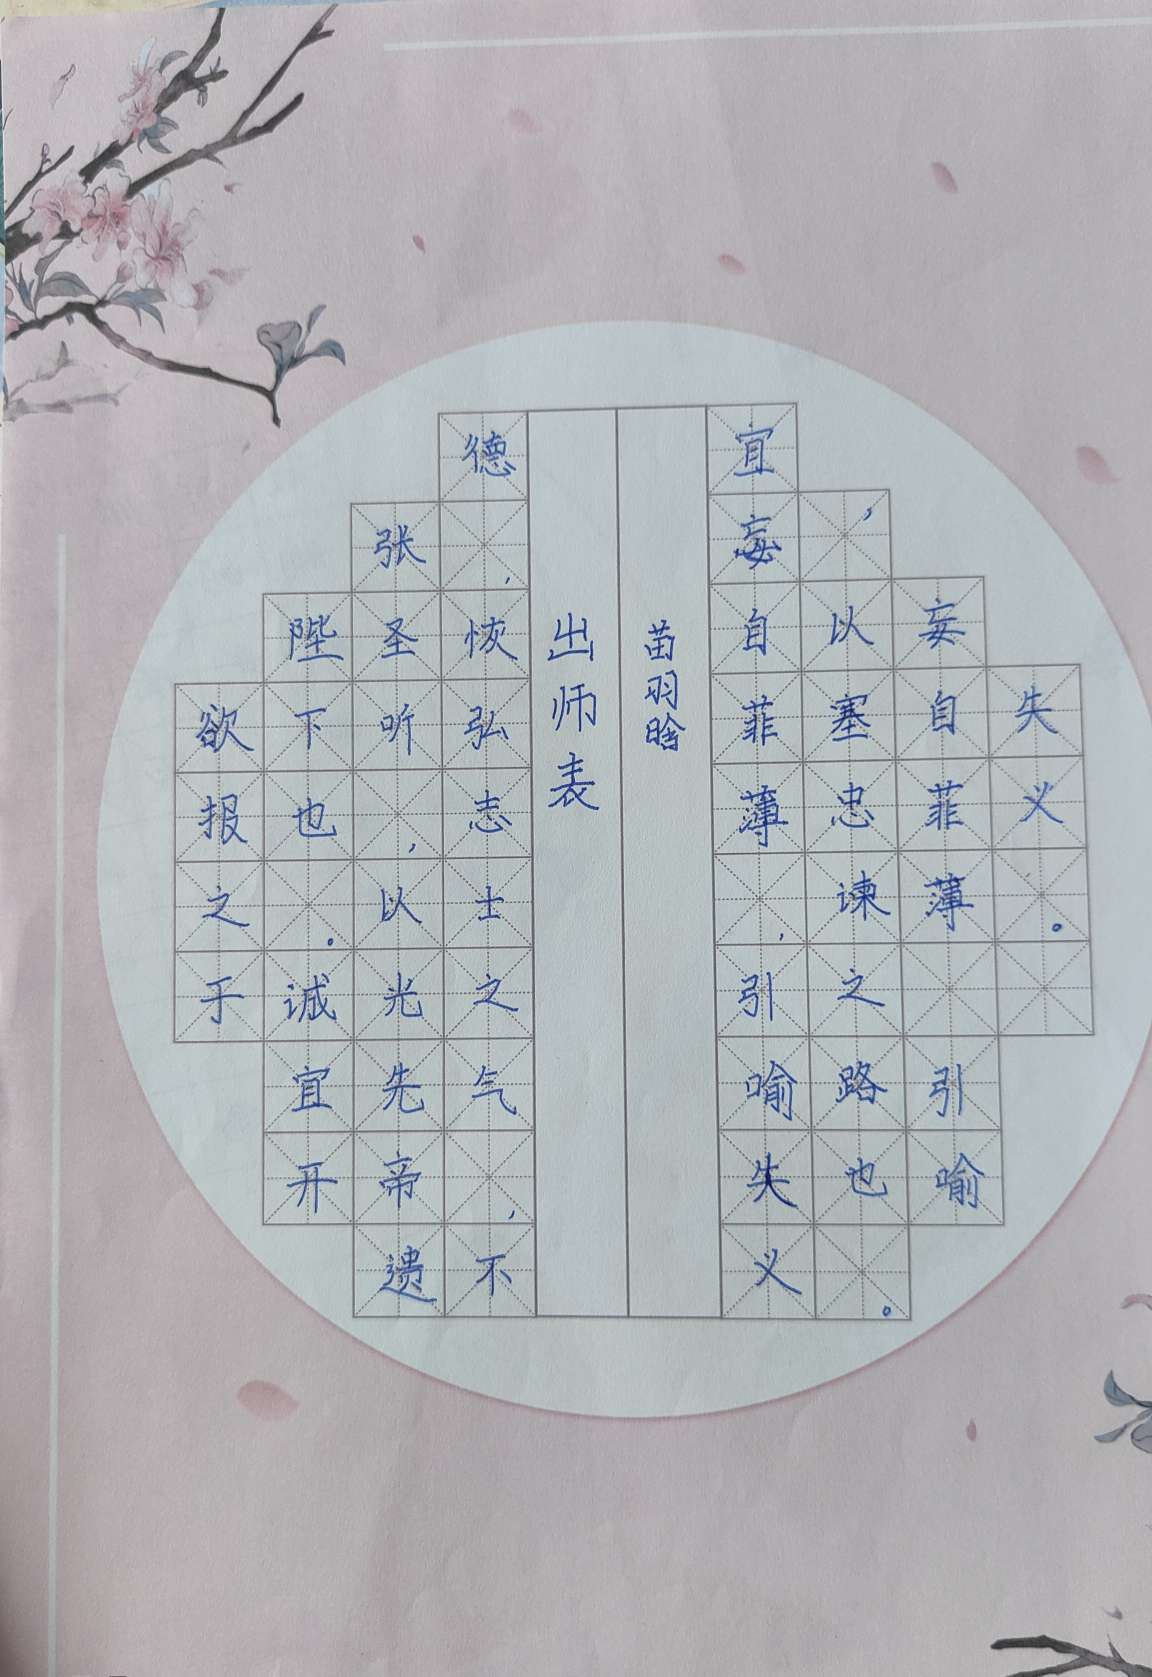 欲报之于
陛下也。诚宜开
张圣听，以光先帝遗
德，恢弘志士之气，不
出师表
苗羽晗
宜妄自菲薄，引喻失义
，以塞忠谏之路也。
妄自菲薄 引喻
失义。